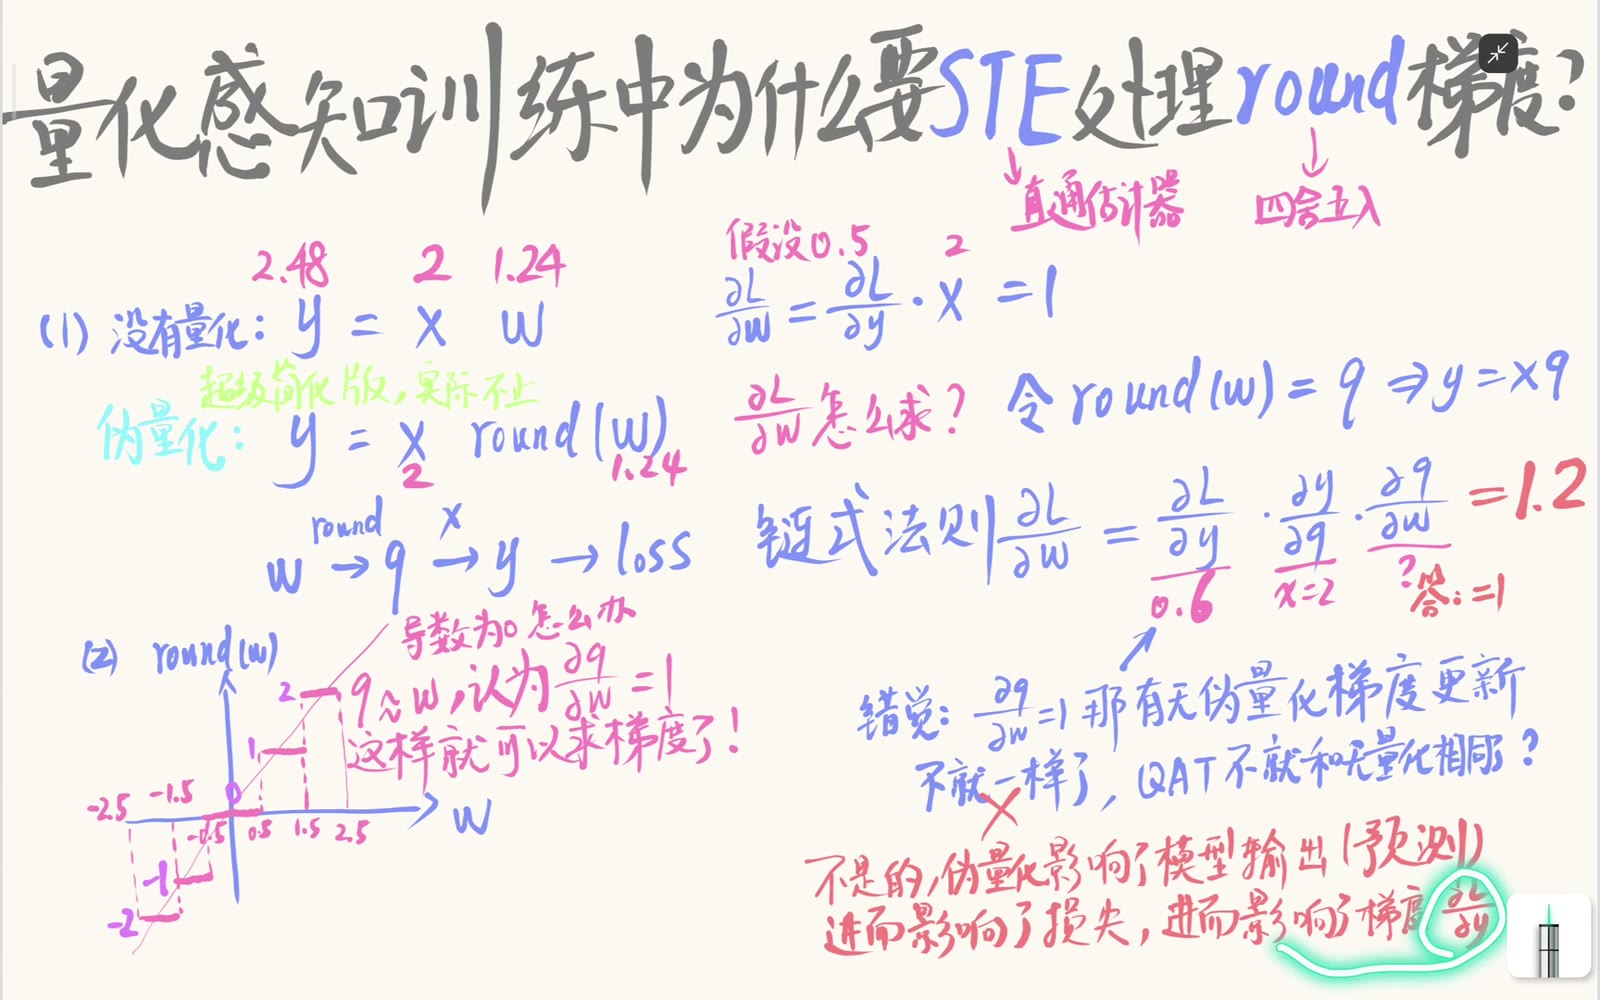 量化感知训练中为什么要STE处理round梯度?
直通估计器
四舍五入
2.48 2 1.24
(1) 没有量化: y = x w
超级简化版,实际不止
伪量化: y = x round(w)
2 1.24
round x
w → q → y → loss
假设0.5 2
∂L/∂w = ∂L/∂y · x = 1
∂L/∂w 怎么求? 令 round(w) = q ⇒ y = xq
链式法则 ∂L/∂w = ∂L/∂y · ∂y/∂q · ∂q/∂w = 1.2
0.6 x=2 ? 答: =1
(2) round(w)
导数为0怎么办
q≈w,认为 ∂q/∂w = 1
这样就可以求梯度了!
2
1
0
-2.5 -1.5 -0.5 0.5 1.5 2.5
w
-1
-2
错觉: ∂q/∂w=1 那有无伪量化梯度更新
不就一样了, QAT不就和无量化相同?
不是的,伪量化影响了模型输出(预测)
进而影响了损失,进而影响了梯度 ∂L/∂y